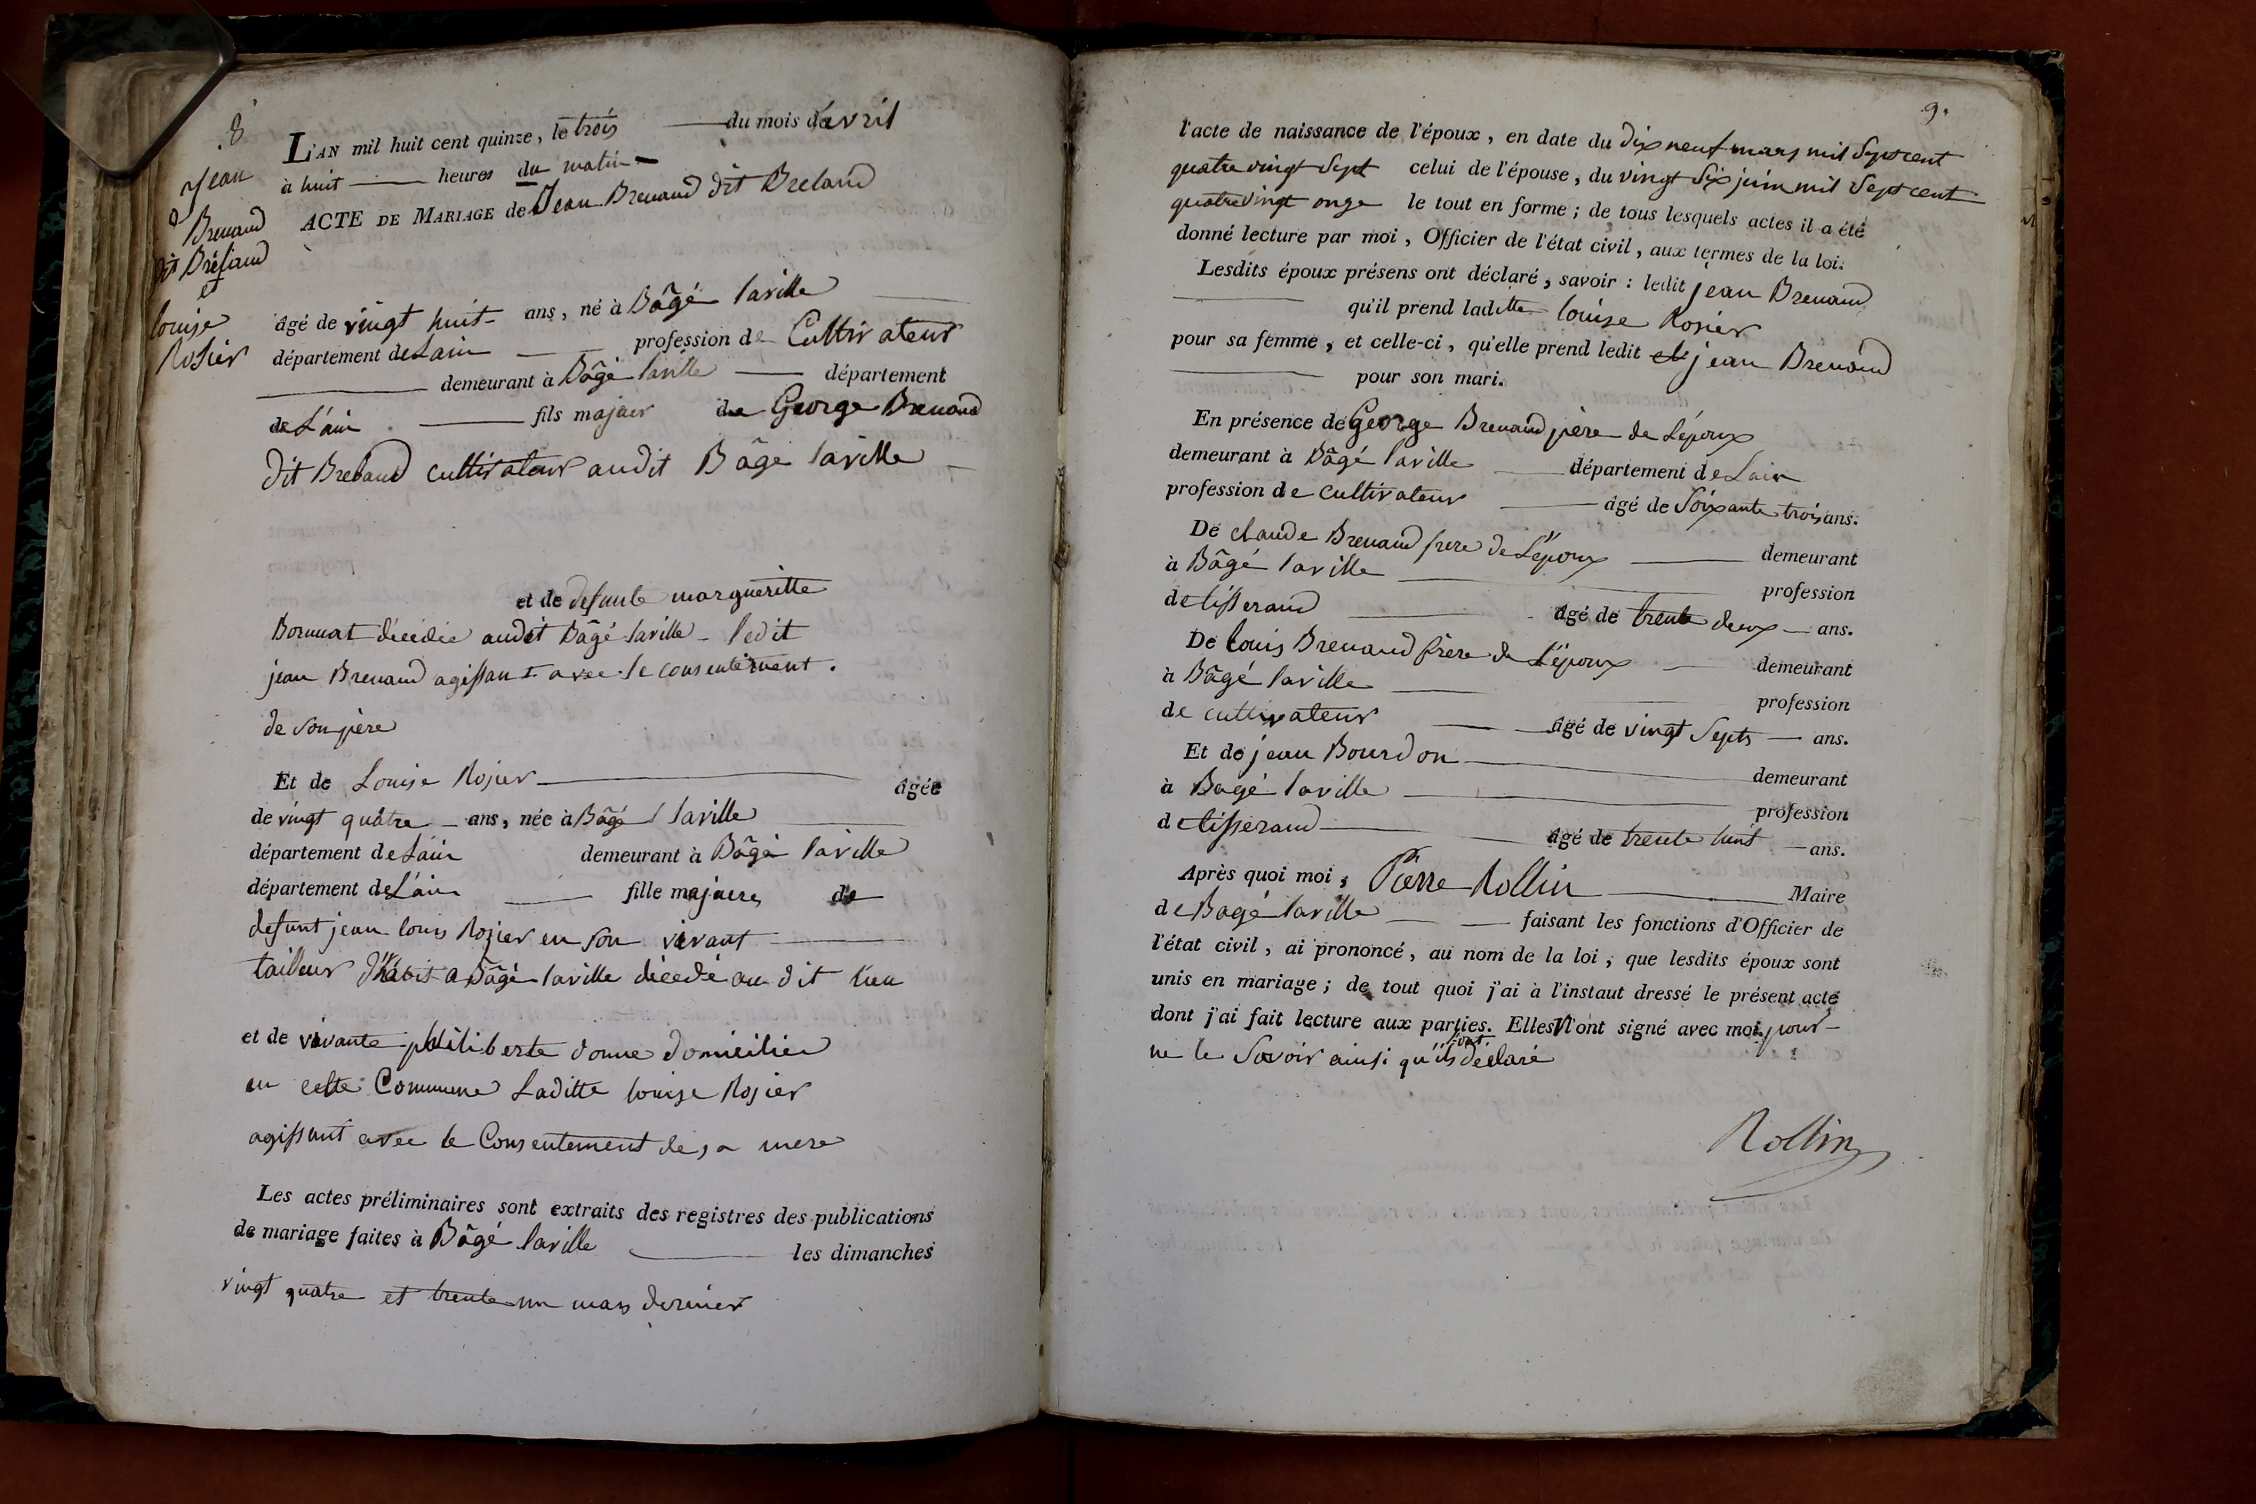 8
Jean
Brevaud
dit Brebaud
et
louise
Rosier
L'AN mil huit cent quinze, le trois du mois d'avril
à huit heures du matin
ACTE DE MARIAGE de Jean Brevaud dit Brebaud
âgé de vingt huit ans, né à Bâgé laville
département de Lain profession de Cultivateur
demeurant à Bâgé laville département
de L'ain fils majeur de George Brevaud
dit Brebaud cultivateur audit Bâgé laville
et de defunte margueritte
Bonnat décédée audit Bâgé laville ledit
jean Brevaud agissant avec le consentement.
de son père
Et de Louise Rosier âgée
de vingt quatre ans, née à Bâgé laville
département de Lain demeurant à Bâgé laville
département de L'ain fille majeure de
defunt jean louis Rozier en son vivant
tailleur d'habit a Bâgé laville décédé au dit lieu
et de vivante philiberte donne domiciliée
en cette Commune Laditte louise Rosier
agissant avec le Consentement de sa mere
Les actes préliminaires sont extraits des registres des publications
de mariage faites à Bâgé laville les dimanches
vingt quatre et trente un mars dernier
9.
l'acte de naissance de l'époux, en date du dix neuf mars mil Sept cent
quatre vingt Sept celui de l'épouse, du vingt Six juin mil Sept cent
quatre vingt onze le tout en forme; de tous lesquels actes il a été
donné lecture par moi, Officier de l'état civil, aux termes de la loi.
Lesdits époux présens ont déclaré, savoir: ledit jean Brevaud
qu'il prend laditte louise Rosier
pour sa femme, et celle-ci, qu'elle prend ledit jean Brevaud
pour son mari.
En présence de George Brevaud père de L'époux
demeurant à Bâgé laville département de Lain
profession de cultivateur âgé de Soixante trois ans.
De claude Brevaud frere de L'époux demeurant
à Bâgé laville profession
de tisserand âgé de trente deux ans.
De louis Brevaud frère de L'époux demeurant
à Bâgé laville profession
de cultivateur âgé de vingt Septs ans.
Et de jean Bourdon demeurant
à Bagé laville profession
de tisserand âgé de trente huit ans.
Après quoi moi, Pierre Rollin Maire
de Bagé laville faisant les fonctions d'Officier de
l'état civil, ai prononcé, au nom de la loi, que lesdits époux sont
unis en mariage; de tout quoi j'ai à l'instaut dressé le présent acte
dont j'ai fait lecture aux parties. Elles N'ont signé avec moi, pour
ne le Savoir ainsi qu'ils ont déclaré
Rollin